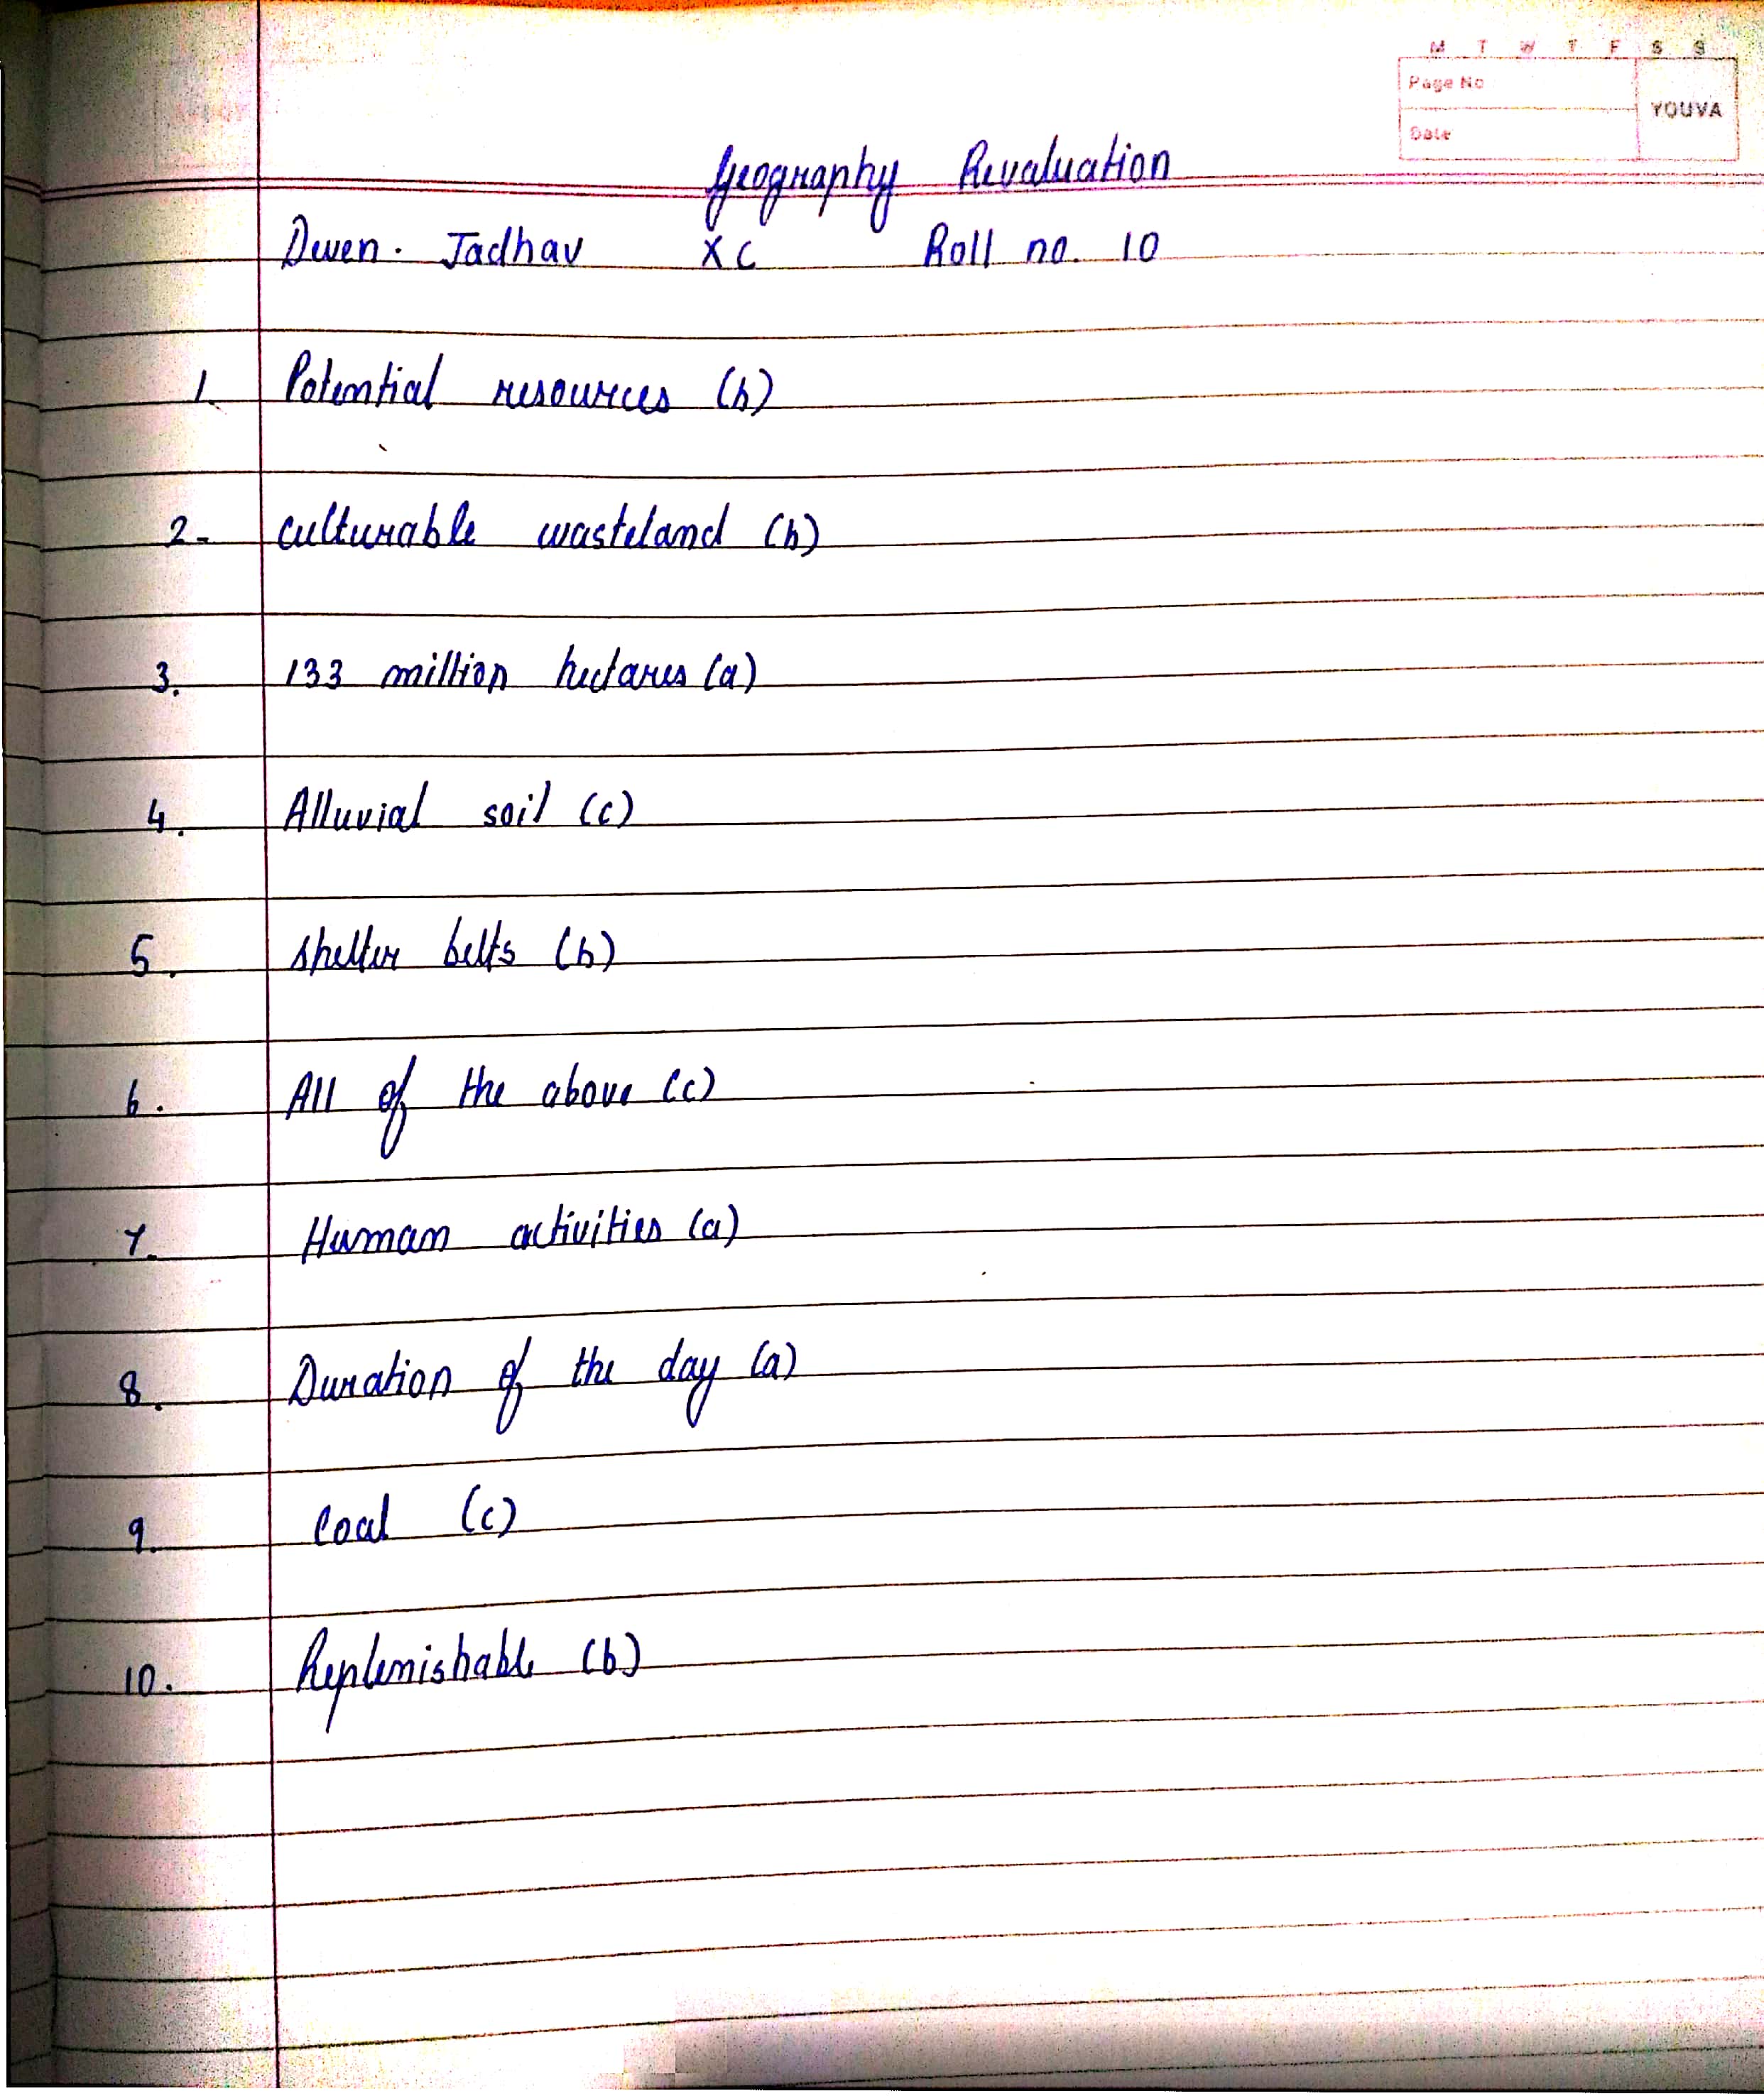 M T W T F S S
Page No
YOUVA
Date
Geography Revaluation
Dwen. Jadhav XC Roll no. 10
1. Potential resources (b)
2. Culturable wasteland (b)
3. 133 million hectares (a)
4. Alluvial soil (c)
5. Shelter belts (b)
6. All of the above (c)
7. Human activities (a)
8. Duration of the day (a)
9. Coal (c)
10. Replenishable (b)